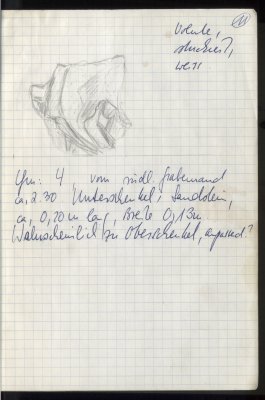 Volute,
weiss
4 vom südl. Grabenrand
ca. 2.30 Unterschenkel, Sandstein,
ca. 0,20 m lang, Breite 0,13 m
Wahrscheinlich zu Oberschenkel, anpassend?